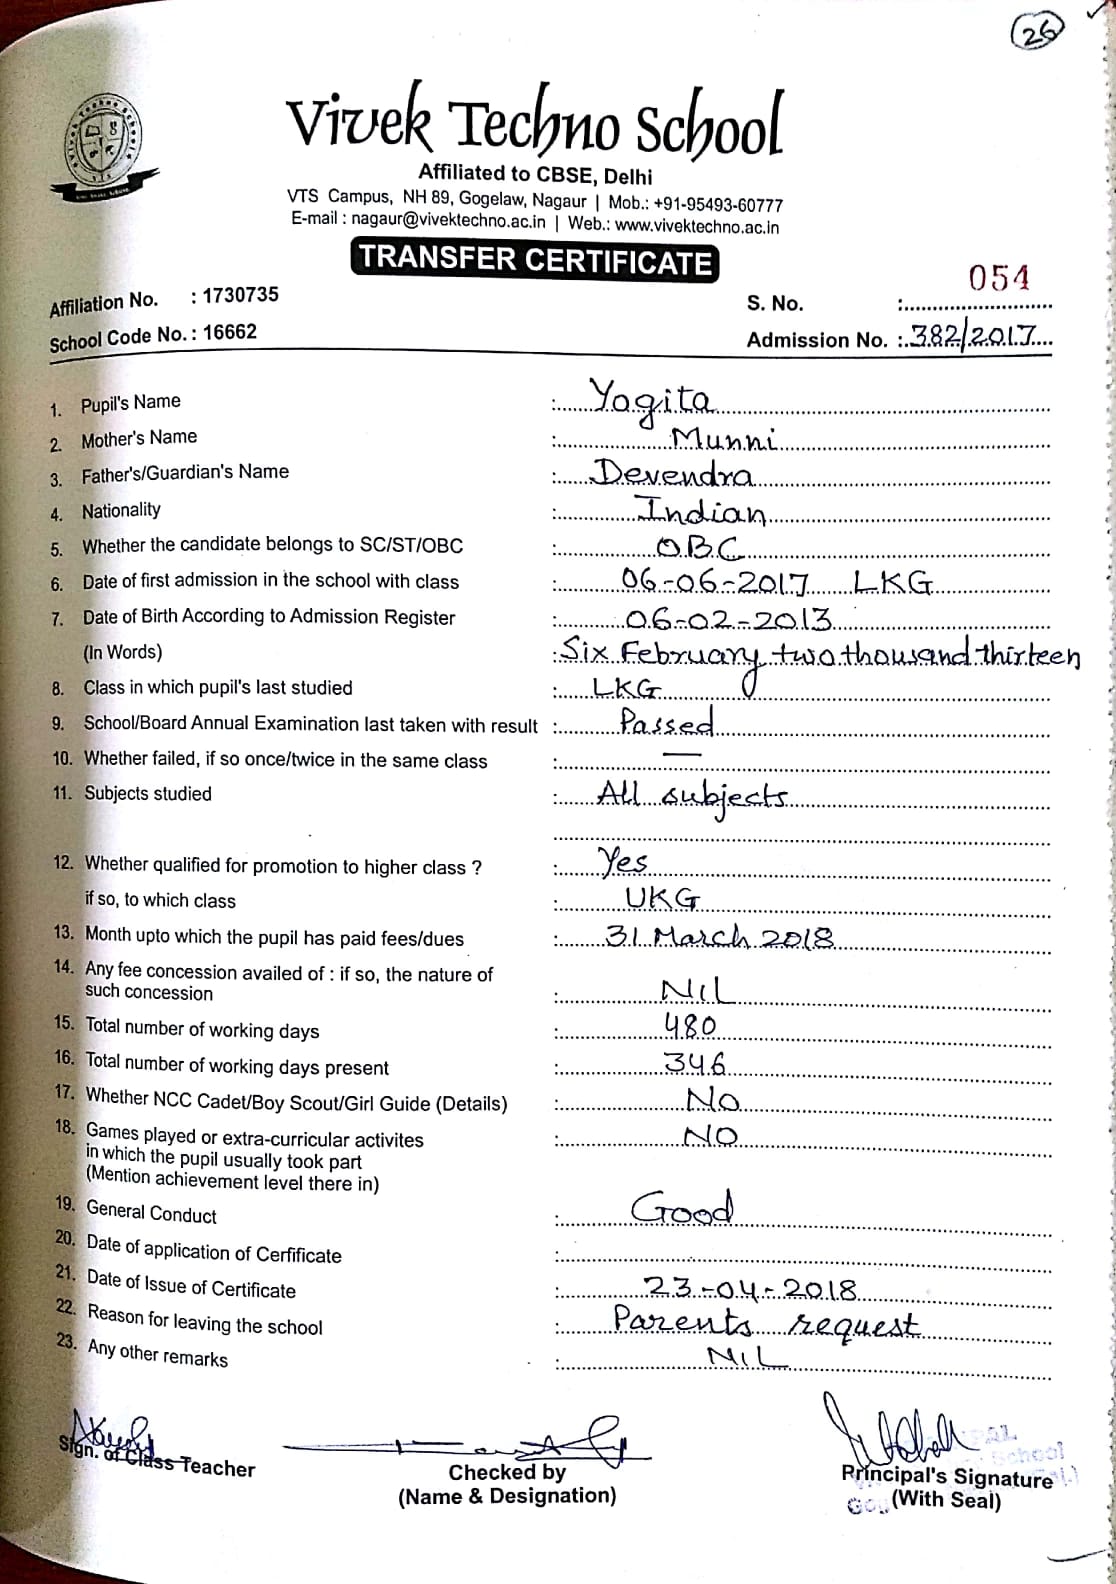 26
Vivek Techno School
Affiliated to CBSE, Delhi
VTS Campus, NH 89, Gogelaw, Nagaur | Mob.: +91-95493-60777
E-mail : nagaur@vivektechno.ac.in | Web.: www.vivektechno.ac.in
TRANSFER CERTIFICATE
Affiliation No. : 1730735 S. No. : 054
School Code No. : 16662 Admission No. : 382/2017
1. Pupil's Name : Yogita
2. Mother's Name : Munni
3. Father's/Guardian's Name : Devendra
4. Nationality : Indian
5. Whether the candidate belongs to SC/ST/OBC : OBC
6. Date of first admission in the school with class : 06-06-2017 LKG
7. Date of Birth According to Admission Register : 06-02-2013
(In Words) : Six February two thousand thirteen
8. Class in which pupil's last studied : LKG
9. School/Board Annual Examination last taken with result : Passed
10. Whether failed, if so once/twice in the same class : —
11. Subjects studied : All subjects
12. Whether qualified for promotion to higher class ? : Yes
if so, to which class : UKG
13. Month upto which the pupil has paid fees/dues : 31 March 2018
14. Any fee concession availed of : if so, the nature of
such concession : NIL
15. Total number of working days : 480
16. Total number of working days present : 346
17. Whether NCC Cadet/Boy Scout/Girl Guide (Details) : No
18. Games played or extra-curricular activites : NO
in which the pupil usually took part
(Mention achievement level there in)
19. General Conduct : Good
20. Date of application of Cerfificate :
21. Date of Issue of Certificate : 23-04-2018
22. Reason for leaving the school : Parents request
23. Any other remarks : NIL
Sign. of Class Teacher
Checked by
(Name & Designation)
School
Principal's Signature
(With Seal)